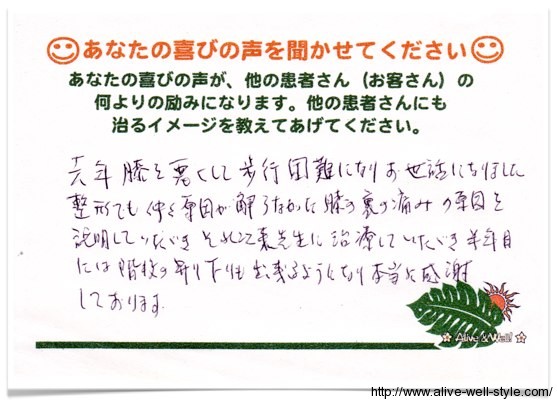 あなたの喜びの声を聞かせてください
あなたの喜びの声が、他の患者さん（お客さん）の
何よりの励みになります。他の患者さんにも
治るイメージを教えてあげてください。
去年膝を悪くして歩行困難になりお世話になりました
整形でも仲々原因が解らなかった膝の裏の痛みの原因を
説明していただき それに先生に治療していただき半年目
には階段の昇り下りも出来るようになり本当に感謝
しております。
Alive & Well!
http://www.alive-well-style.com/